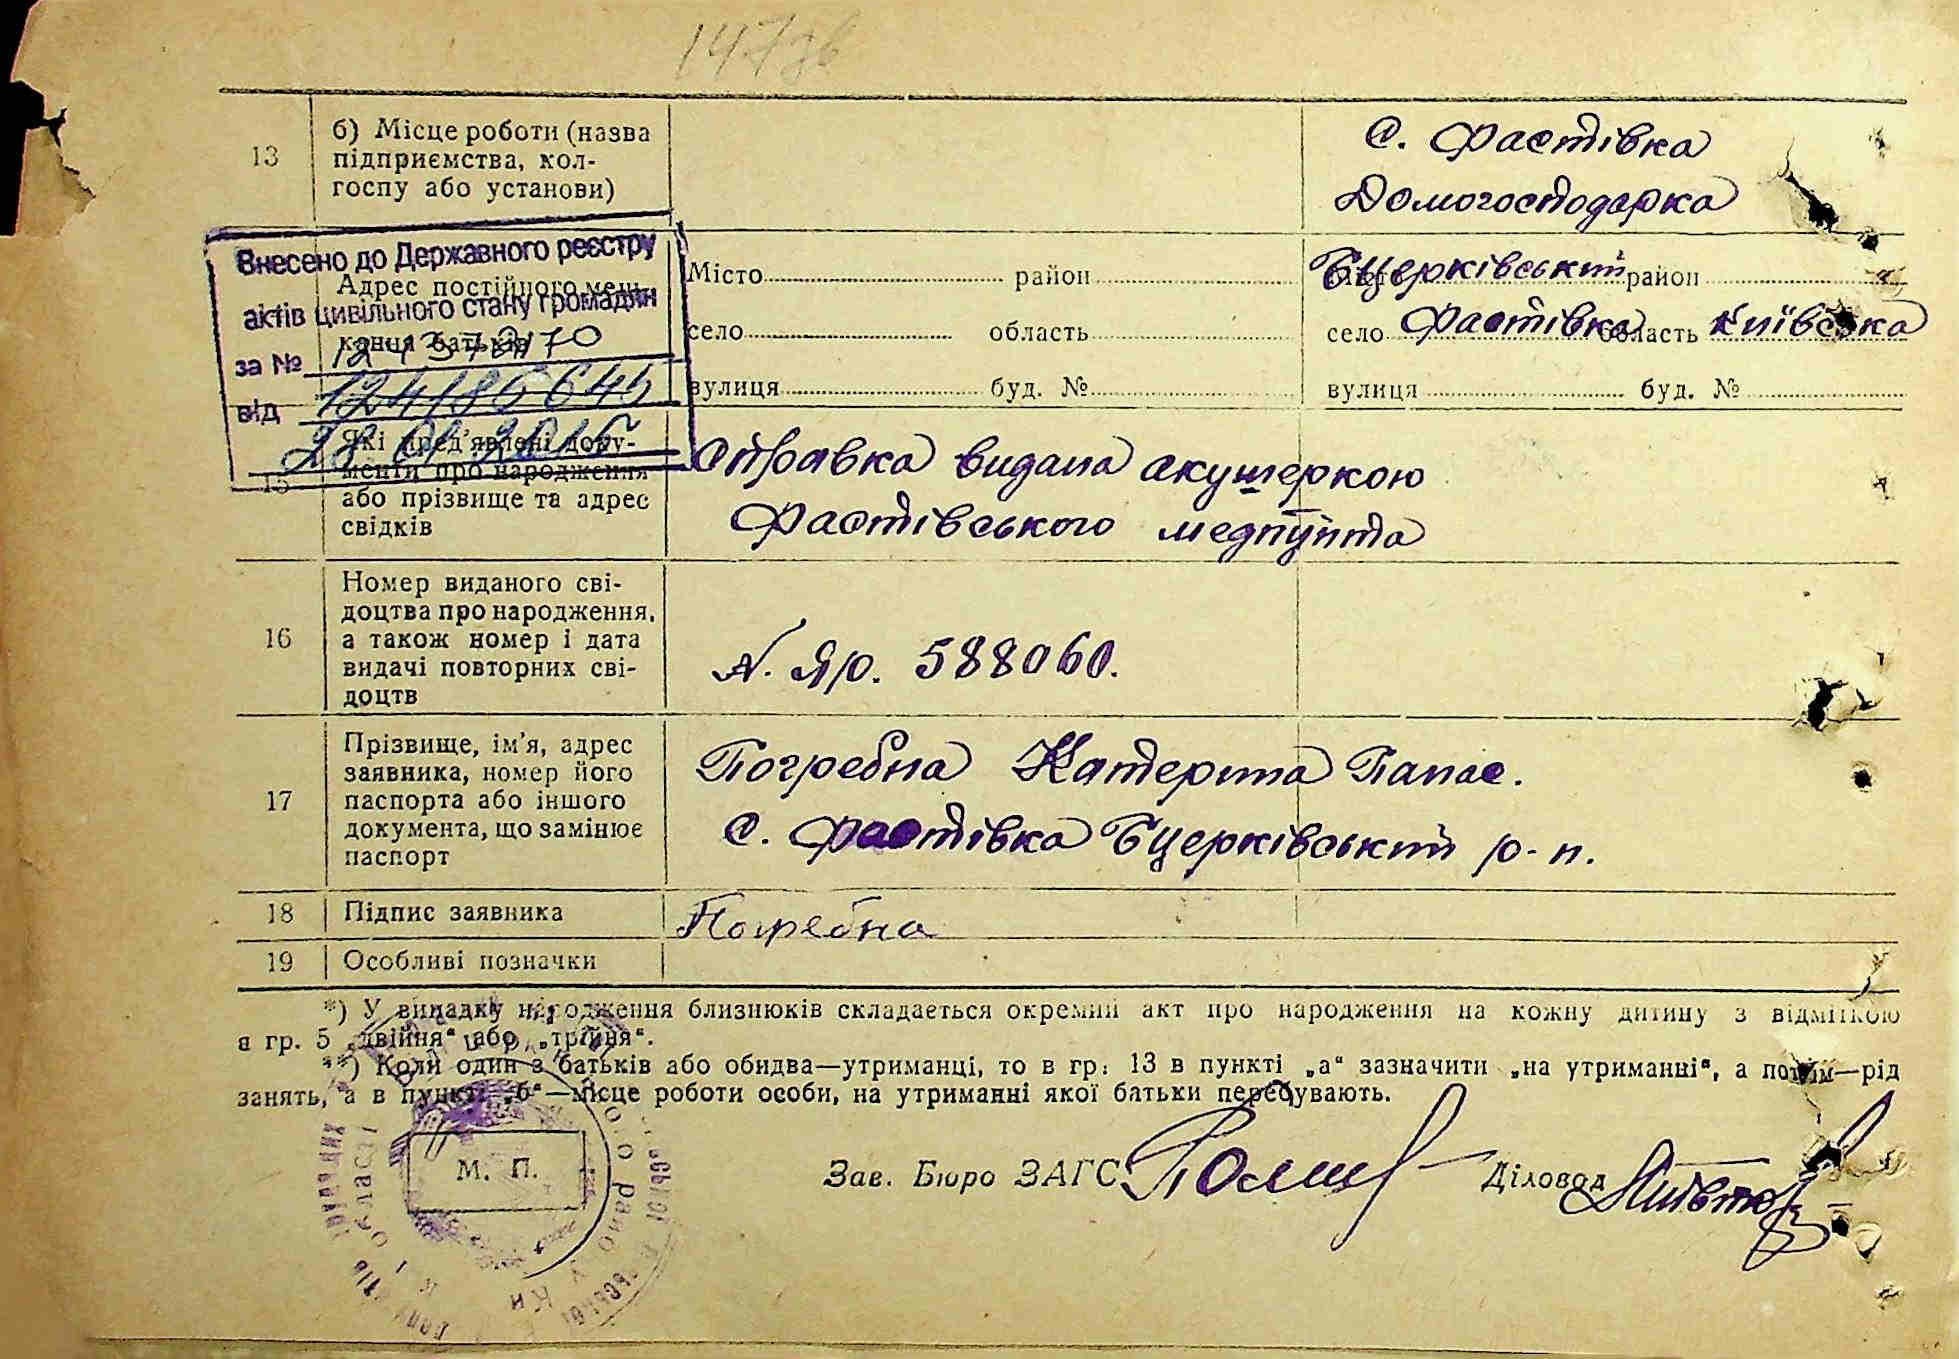 13
б) Місце роботи (назва
підприємства, кол-
госпу або установи)
с. Фастівка
Домогосподарка
Внесено до Державного реєстру
актів цивільного стану громадян
за №
від
Адрес постійного меш-
канця батьків
Місто район
село область
вулиця буд. №
Бцерківський район
село Фастівка область Київська
вулиця буд. №
15
Які пред'явлені доку-
менти про народження
або прізвище та адрес
свідків
Справка видана акушеркою
Фастівського медпункта
16
Номер виданого сві-
доцтва про народження,
а також номер і дата
видачі повторних сві-
доцтв
N. Яр. 588060.
17
Прізвище, ім'я, адрес
заявника, номер його
паспорта або іншого
документа, що замінює
паспорт
Погребна Катерина Панас.
с. Фастівка Бцерківський р-н.
18
Підпис заявника
Погребна
19
Особливі позначки
*) У випадку народження близнюків складається окремий акт про народження на кожну дитину з відміткою
в гр. 5 „двійня“ або „трійня“.
**) Коли один з батьків або обидва—утриманці, то в гр. 13 в пункті „а“ зазначити „на утриманні“, а потім—рід
занять, а в пункті „б“—місце роботи особи, на утриманні якої батьки перебувають.
М. П.
Зав. Бюро ЗАГС
Діловод